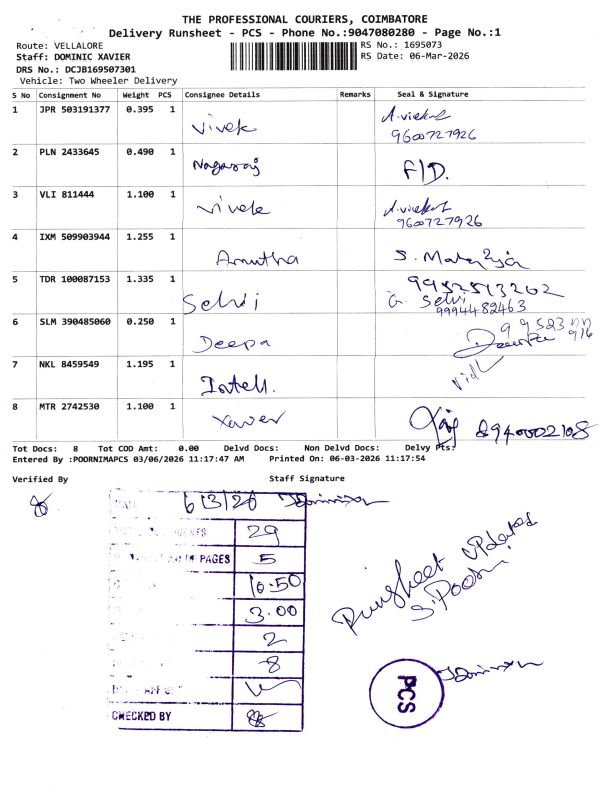 THE PROFESSIONAL COURIERS, COIMBATORE
Delivery Runsheet - PCS - Phone No.:9047080280 - Page No.:1
Route: VELLALORE
RS No.: 1695073
Staff: DOMINIC XAVIER
RS Date: 06-Mar-2026
DRS No.: DCJB169507301
Vehicle: Two Wheeler Delivery
S No Consignment No Weight PCS Consignee Details Remarks Seal & Signature
1 JPR 503191377 0.395 1 Vivek A.vivek
9600727926
2 PLN 2433645 0.490 1 Nagaraj F/D.
3 VLI 811444 1.100 1 Vivek A.vivek
9600727926
4 IXM 509903944 1.255 1 Amutha S.
5 TDR 100087153 1.335 1 Selvi G Selvi
9994482463
6 SLM 390485060 0.250 1 Deepa
7 NKL 8459549 1.195 1 Intell.
8 MTR 2742530 1.100 1 Xavier 8940002108
Tot Docs: 8 Tot COD Amt: 0.00 Delvd Docs: Non Delvd Docs: Delvy Pts:
Entered By :POORNIMAPCS 03/06/2026 11:17:47 AM Printed On: 06-03-2026 11:17:54
Verified By Staff Signature
6/3/26
29
PAGES 5
10.50
3.00
2
8
CHECKED BY
Runsheet updated
S.Poorni
PCS